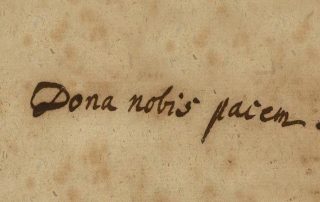 Dona nobis pacem.